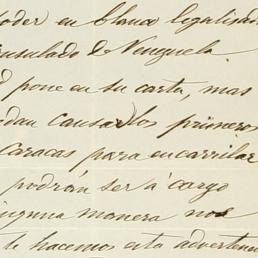 oder en blanco legalisad
nsulado de Venezuela
d pone en su carta, mas
odan causar los primeros
Caracas para encarrilar
podrán ser á cargo
inguna manera nos
te hacemos esta advertenc